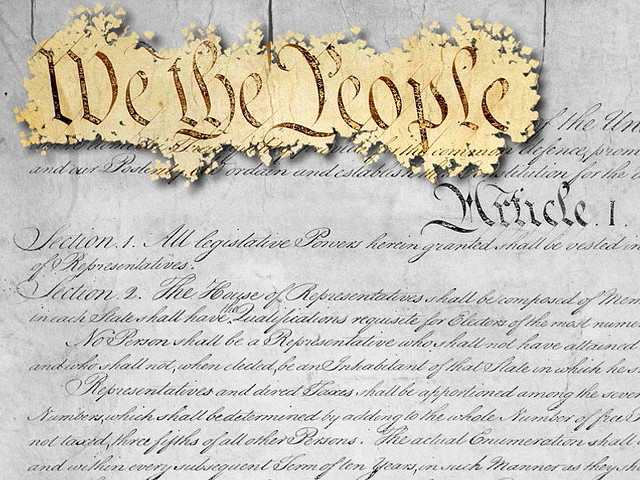 We the People
of the Un
defence, prom
and our Posterity, do ordain and establish this Constitution for the
Article. I.
Section. 1. All legislative Powers herein granted shall be vested in
of Representatives.
Section. 2. The House of Representatives shall be composed of Mem
in each State shall have the Qualifications requisite for Electors of the most nume
No Person shall be a Representative who shall not have attained
and who shall not, when elected, be an Inhabitant of that State in which he s
Representatives and direct Taxes shall be apportioned among the seve
Numbers, which shall be determined by adding to the whole Number of free
not taxed, three fifths of all other Persons. The actual Enumeration shall
and within every subsequent Term of ten Years, in such Manner as they sh